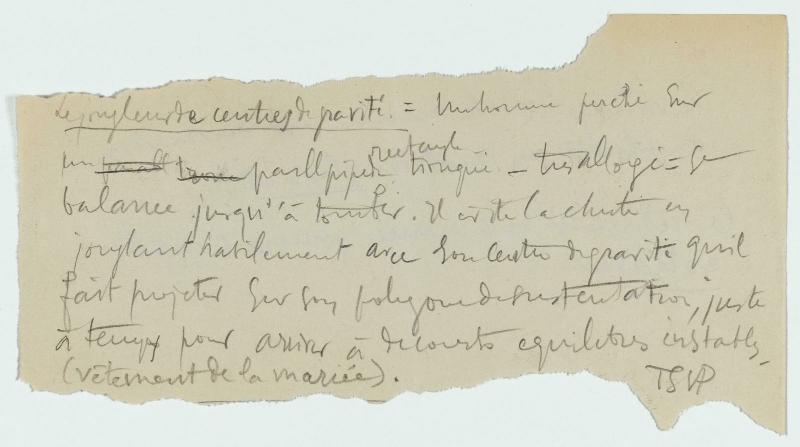 Le jongleur de centres de gravité. = Un homme perché sur
un parallélépipède rectangle tronqué – très allongé = se
balance jusqu'à tomber. Il évite la chute en
jonglant habilement avec son centre de gravité qu'il
fait projeter sur son polygone de sustentation, juste
à temps pour arriver à de courts équilibres instables.
(vêtement de la mariée).
TSVP